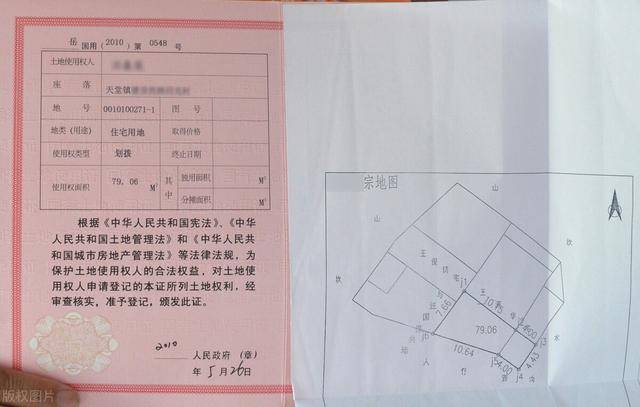 岳 国用(2010)第 0548 号
土地使用权人
座 落 天堂镇
地 号 0010100271-1 图 号
地类(用途) 住宅用地 取得价格
使用权类型 划拨 终止日期
使用权面积 79.06 M² 其中 独用面积 M²
分摊面积 M²
根据《中华人民共和国宪法》、《中华
人民共和国土地管理法》和《中华人民共
和国城市房地产管理法》等法律法规,为
保护土地使用权人的合法权益,对土地使
用权人申请登记的本证所列土地权利,经
审查核实,准予登记,颁发此证。
2010 人民政府(章)
年 5 月 26 日
宗地图
山
山
坎
坎
王
宅
j1
10.75
7.66
79.06
10.64
4.00
j3
4.43
j4
j5
4.00
j6
水
沟
版权图片